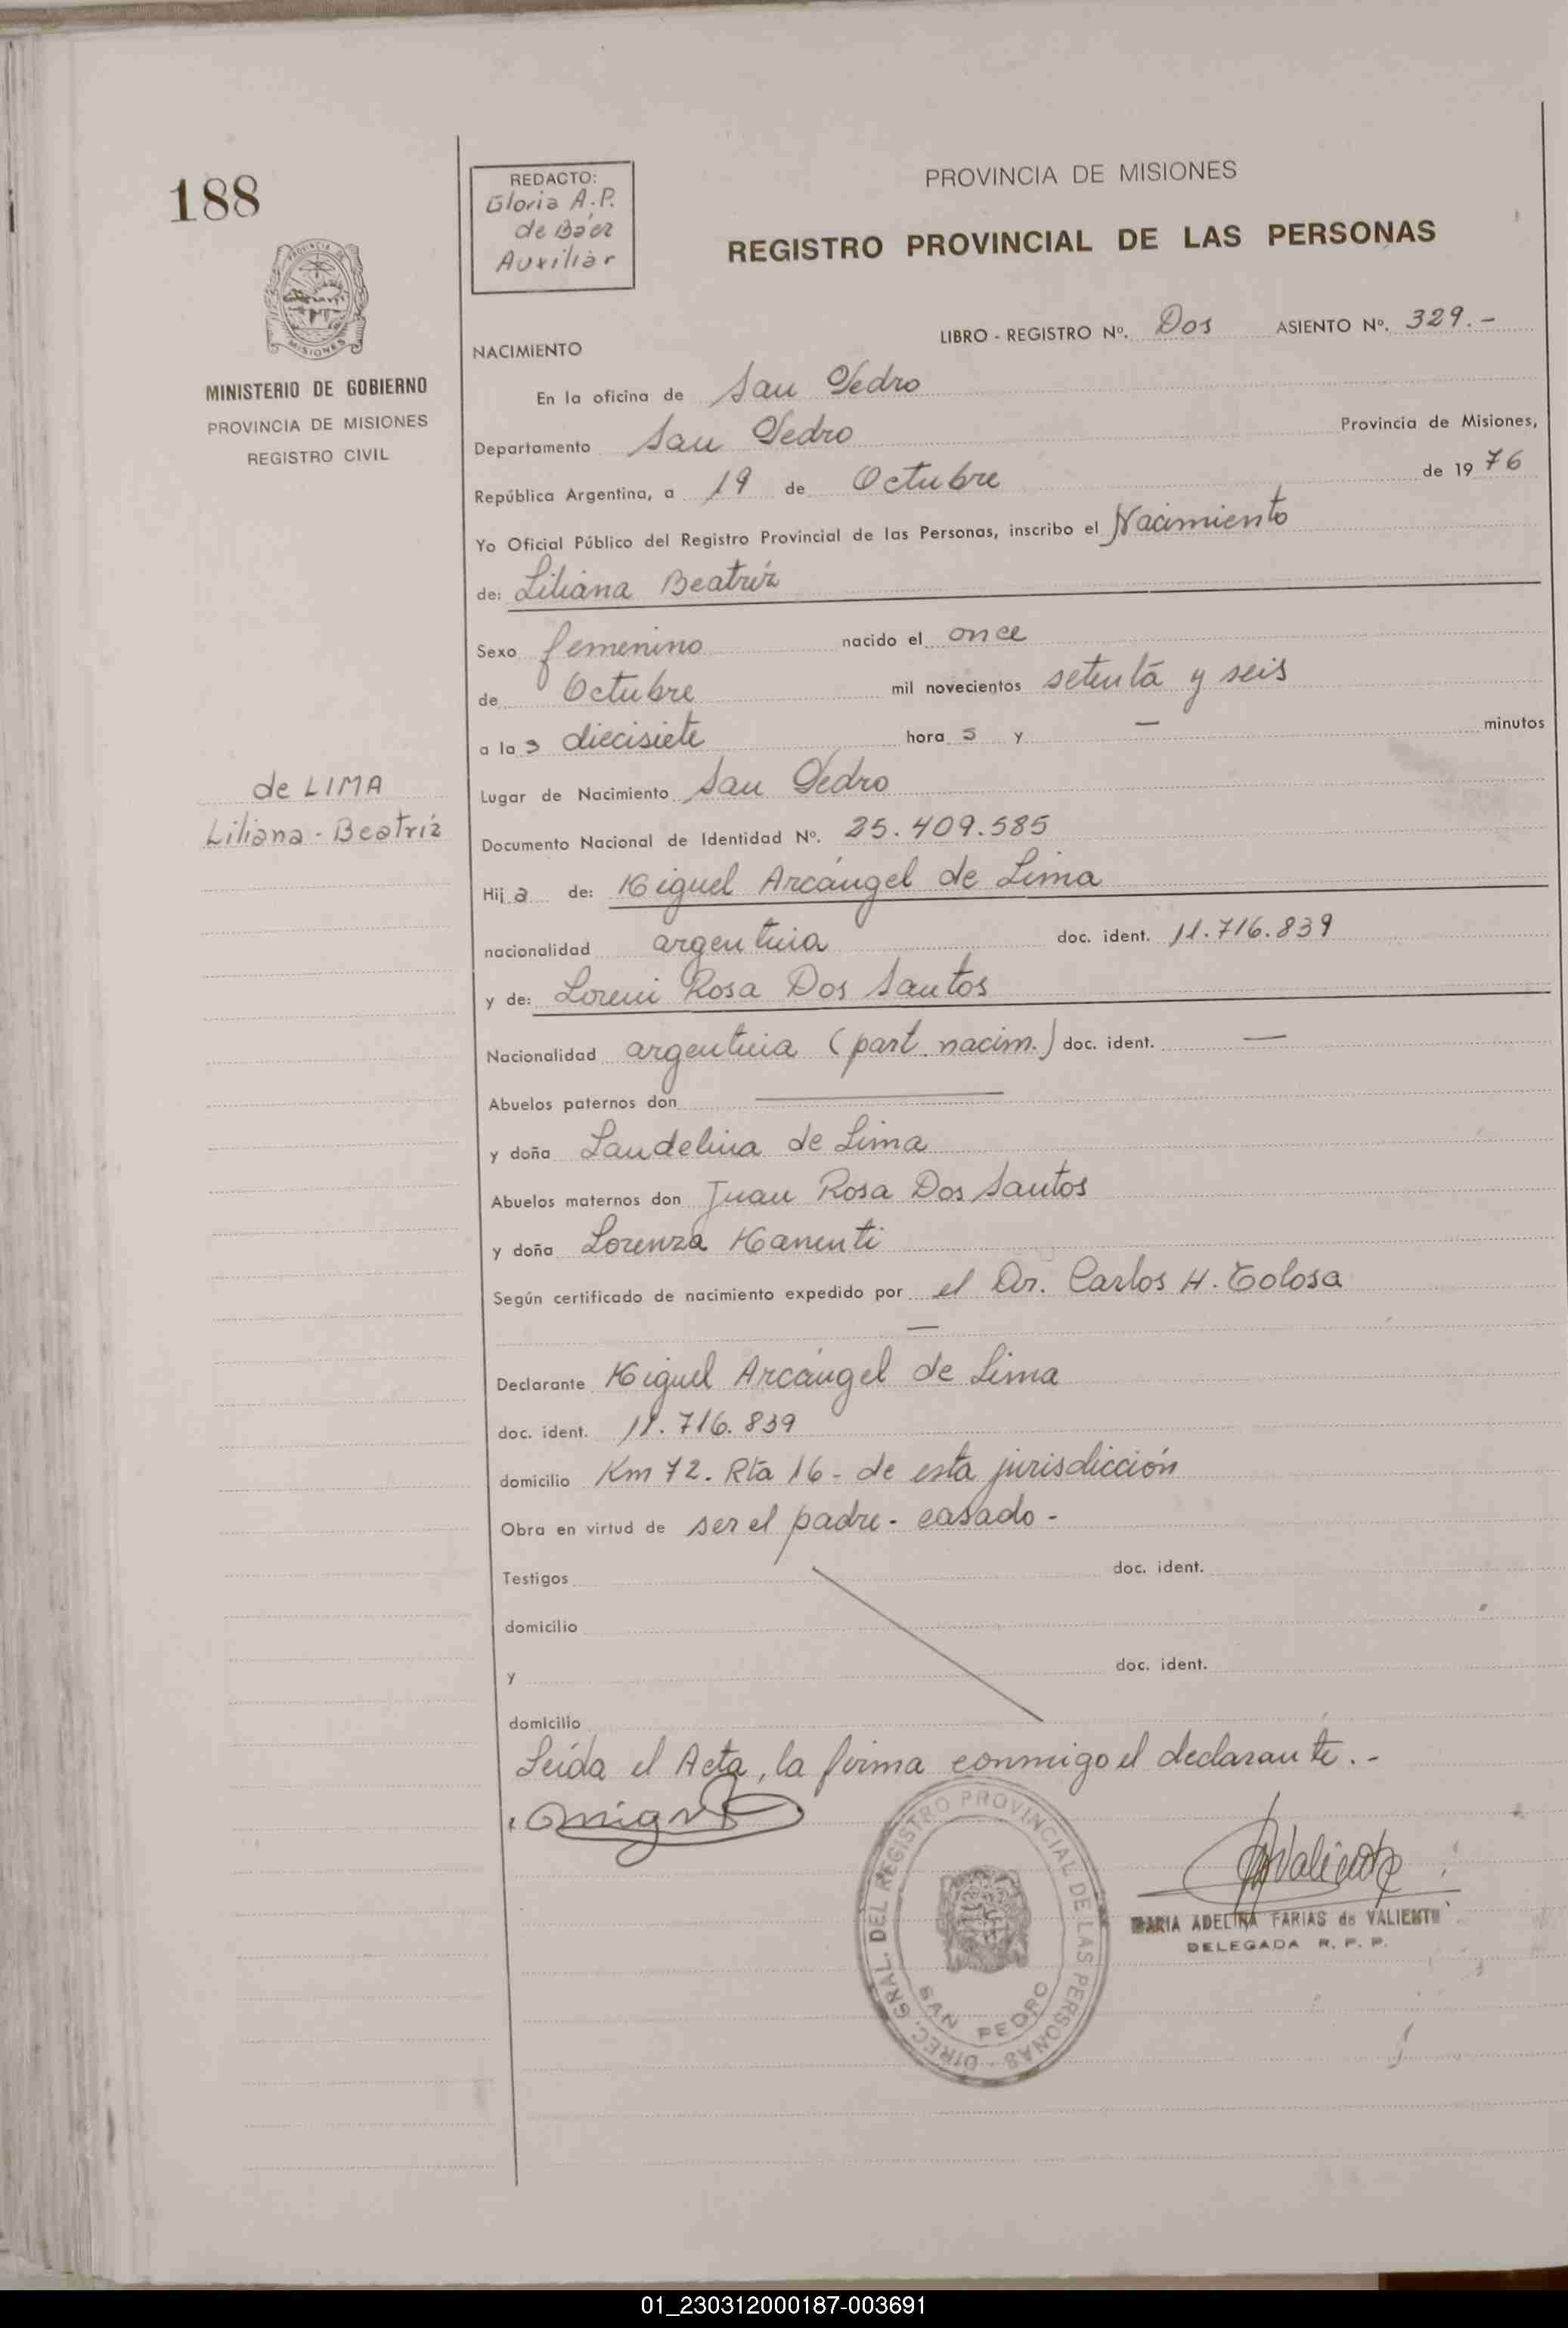 188
REDACTO:
Gloria A.P.
de Báez
Auxiliar
PROVINCIA DE MISIONES
REGISTRO PROVINCIAL DE LAS PERSONAS
MISIONES
MINISTERIO DE GOBIERNO
PROVINCIA DE MISIONES
REGISTRO CIVIL
LIBRO - REGISTRO Nº. Dos ASIENTO Nº. 329.-
NACIMIENTO
En la oficina de San Pedro
Departamento San Pedro Provincia de Misiones,
República Argentina, a 19 de Octubre de 19 76
Yo Oficial Público del Registro Provincial de las Personas, inscribo el Nacimiento
de: Liliana Beatríz
Sexo femenino nacido el once
de Octubre mil novecientos setenta y seis
a la s diecisiete hora s y — minutos
de LIMA
Liliana - Beatríz
Lugar de Nacimiento San Pedro
Documento Nacional de Identidad Nº. 25.409.585
Hij a de: Miguel Arcángel de Lima
nacionalidad argentina doc. ident. 11.716.839
y de: Loreni Rosa Dos Santos
Nacionalidad argentina (part. nacim.) doc. ident. —
Abuelos paternos don —
y doña Laudelina de Lima
Abuelos maternos don Juan Rosa Dos Santos
y doña Lorenza
Según certificado de nacimiento expedido por el Dr. Carlos H. Tolosa
—
Declarante Miguel Arcángel de Lima
doc. ident. 11.716.839
domicilio Km 72. Rta 16 - de esta jurisdicción
Obra en virtud de ser el padre - casado -
Testigos doc. ident.
domicilio
y doc. ident.
domicilio
Leída el Acta, la firma conmigo el declarante.-
DIREC. GRAL. DEL REGISTRO PROVINCIAL DE LAS PERSONAS
SAN PEDRO
MARIA ADELINA FARIAS de VALIENTE
DELEGADA R. P. P.
01_230312000187-003691